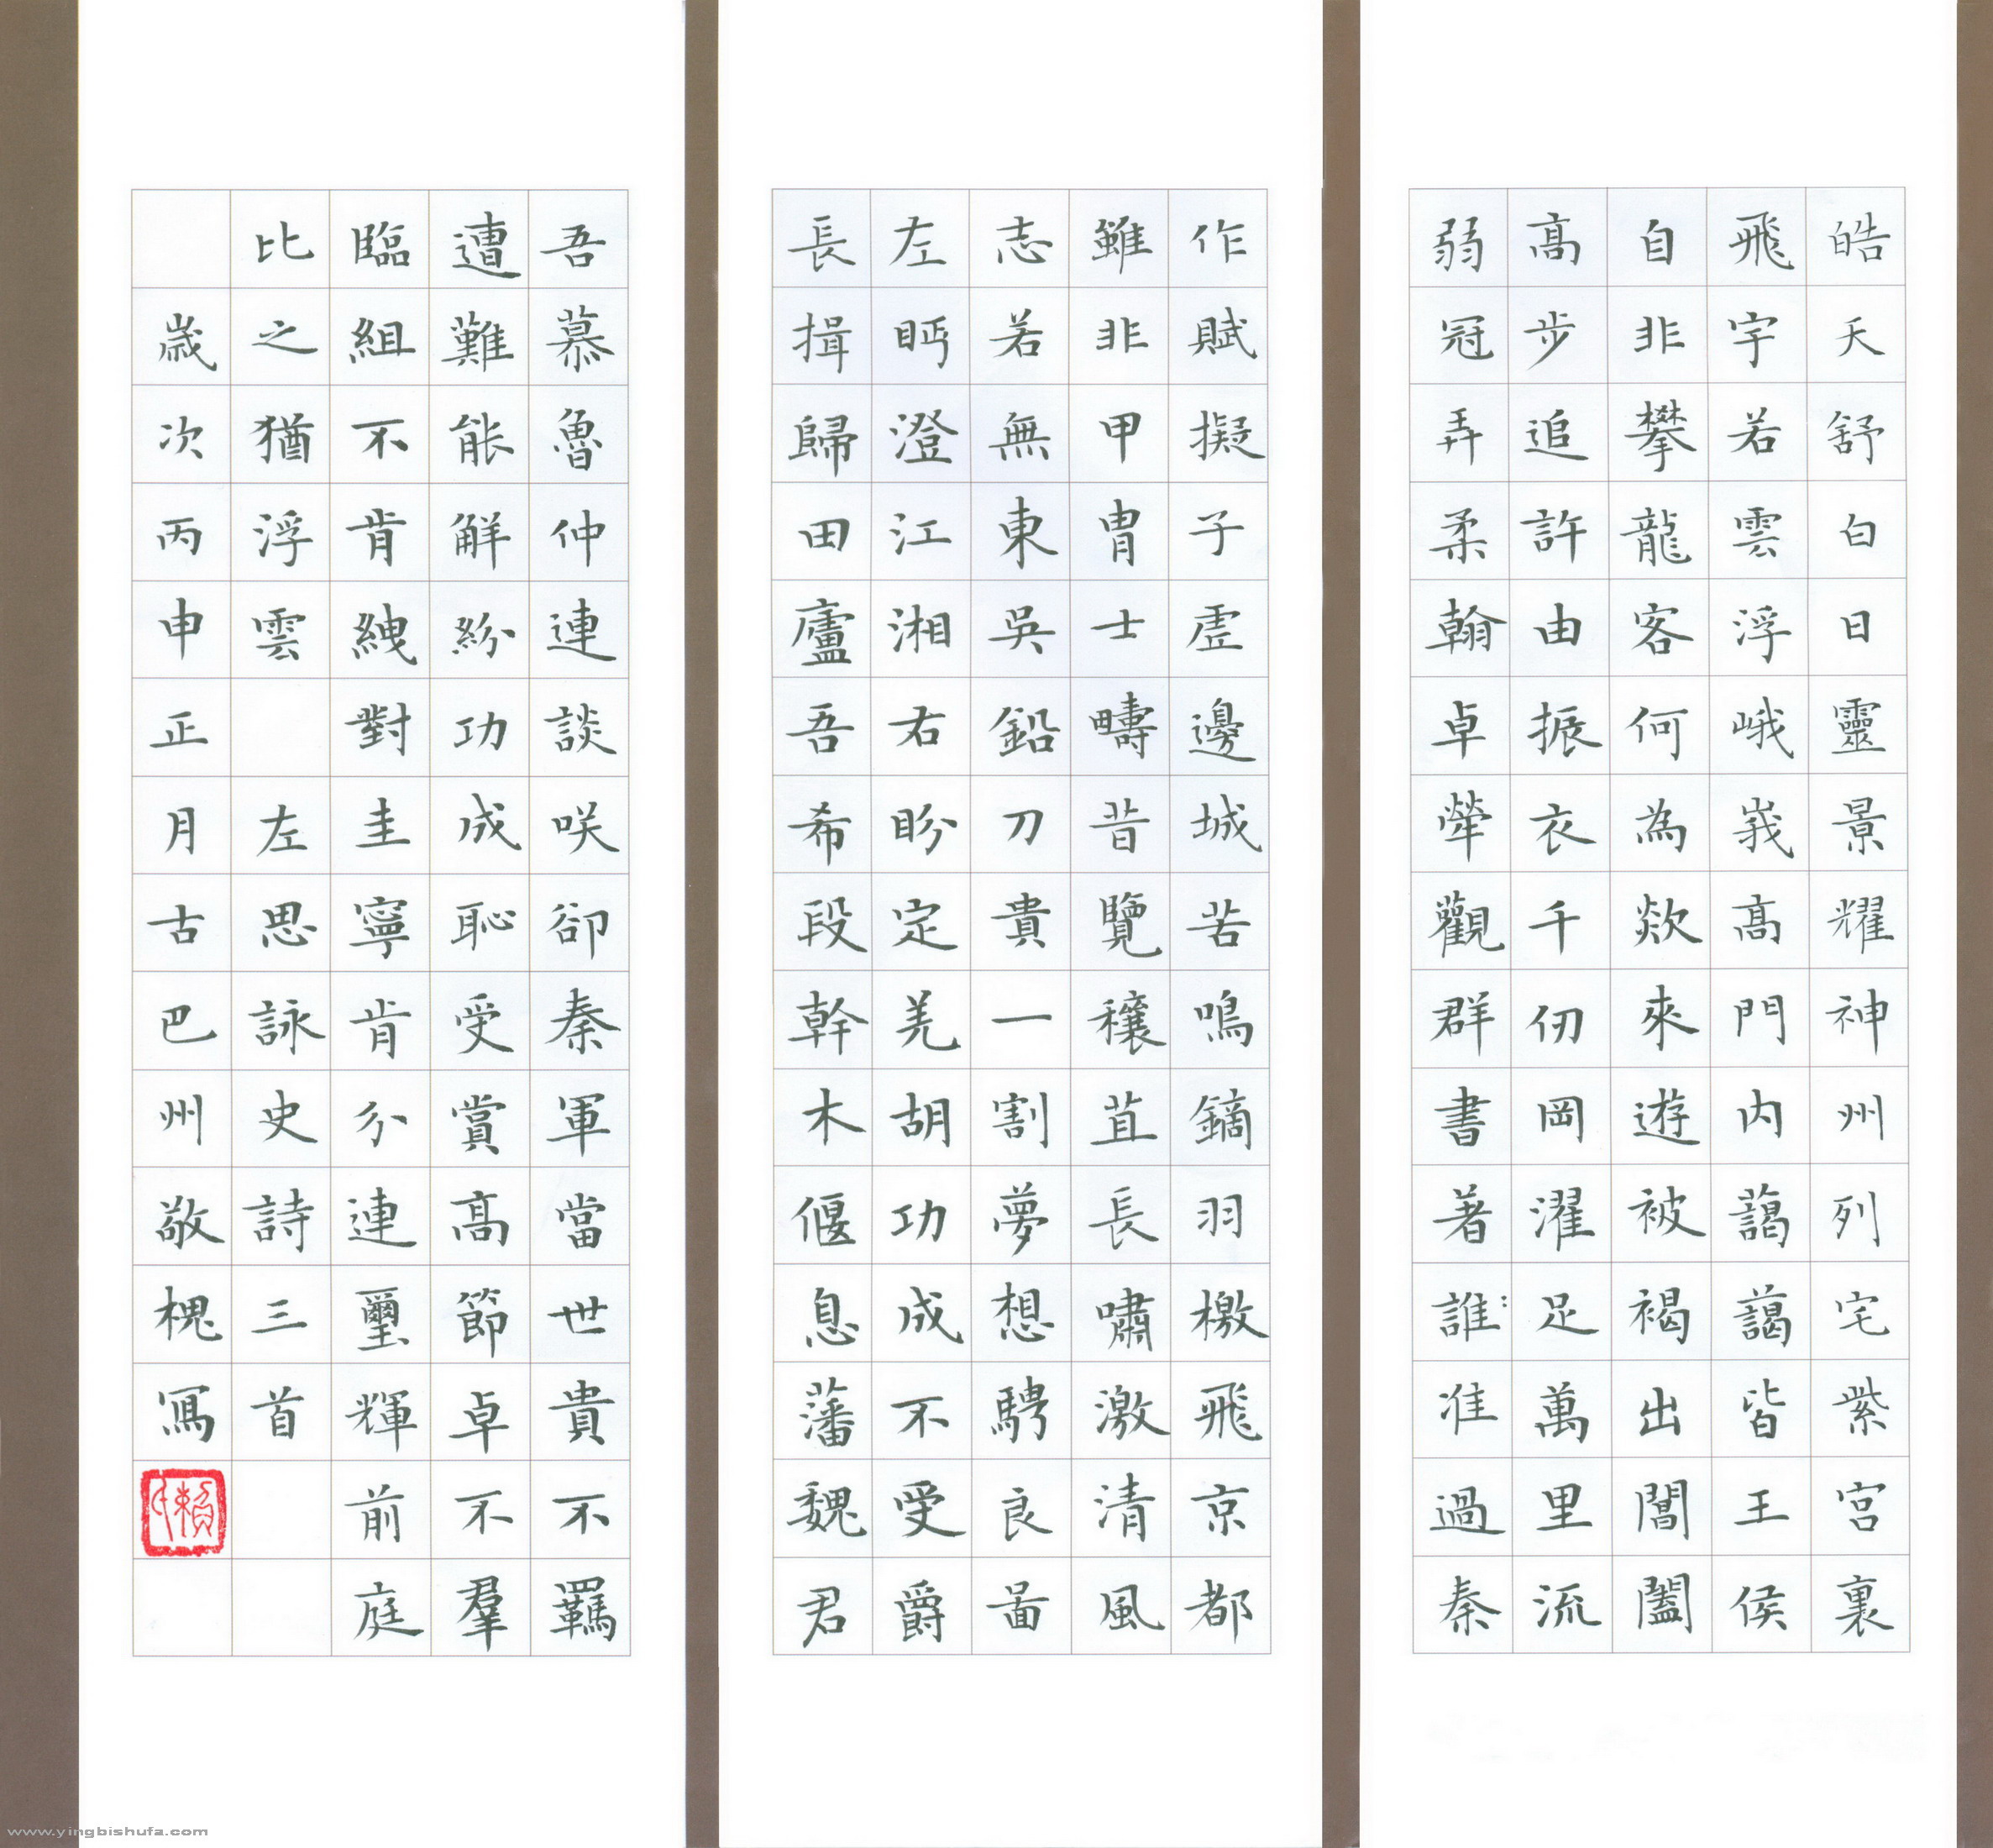 皓天舒白日靈景耀神州列宅紫宮裏
飛宇若雲浮峨峩髙門内藹藹皆王侯
自非攀龍客何為欻來遊被褐出閶闔
髙步追許由振衣千仞岡濯足萬里流
弱冠弄柔翰卓犖觀群書著誰准過秦
作賦擬子虛邊城苦鳴鏑羽檄飛京都
雖非甲冑士疇昔覽穰苴長嘯激清風
志若無東吳鉛刀貴一割夢想騁良啚
左眄澄江湘右盼定羌胡功成不受爵
長揖歸田廬吾希段幹木偃息藩魏君
吾慕魯仲連談咲卻秦軍當世貴不羈
遭難能解紛功成恥受賞髙節卓不羣
臨組不肯緤對圭寧肯分連璽輝前庭
比之猶浮雲 左思詠史詩三首
歲次丙申正月古巴州敬槐寫
賴氏
www.yingbishufa.com